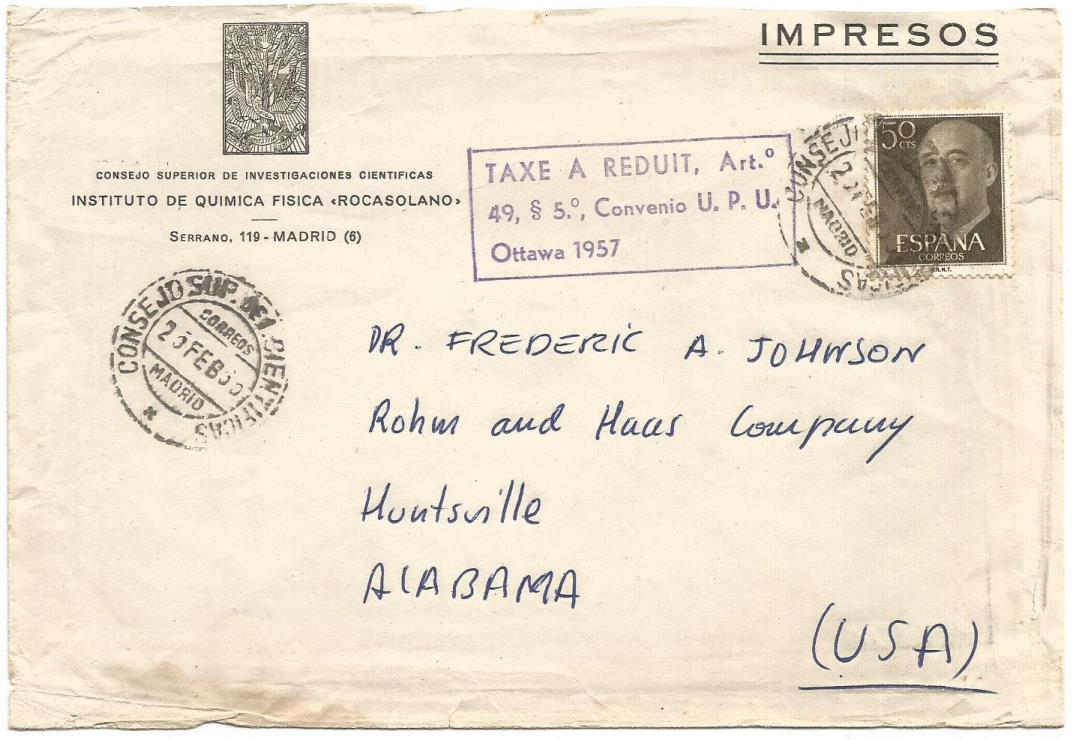 IMPRESOS
CONSEJO SUPERIOR DE INVESTIGACIONES CIENTIFICAS
INSTITUTO DE QUIMICA FISICA «ROCASOLANO»
SERRANO, 119 - MADRID (6)
TAXE A REDUIT, Art.º
49, § 5.º, Convenio U. P. U.
Ottawa 1957
50
CTS
ESPAÑA
CORREOS
CONSEJO
MADRID
CONSEJO SUP. DE I. CIENTIFICAS
CORREOS
FEB
MADRID
DR. FREDERIC A. JOHNSON
Rohm and Haas Company
Huntsville
ALABAMA
(USA)